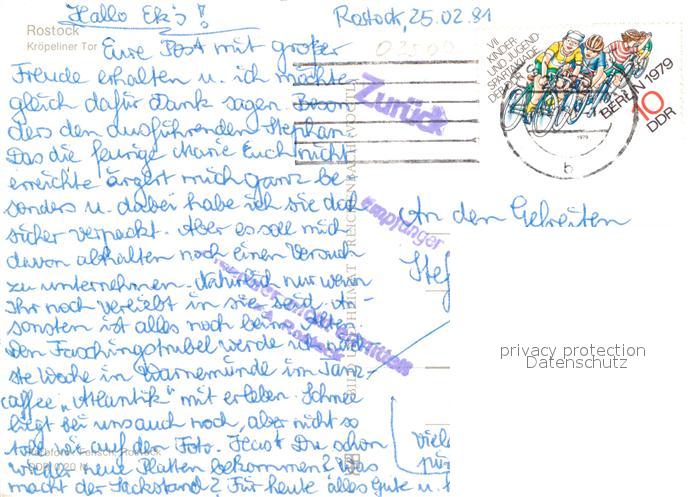 Hallo Ek's!
Rostock, 25.02.81
Rostock
Kröpeliner Tor
Eure Post mit großer
Freude erhalten u. ich möchte
gleich dafür Dank sagen. Beson-
ders den ausführenden Stephan.
Das die feurige Marie Euch nicht
erreichte ärgert mich ganz be-
sonders u. dabei habe ich sie doch
sicher verpackt. Aber es soll mich
davon abhalten noch einen Versuch
zu unternehmen. Natürlich nur wenn
Ihr noch verliebt in sie seid. An-
sonsten ist alles noch beim Alten.
Den Faschingstrubel werde ich näch-
ste Woche in Warnemünde im Tanz-
caffee „Atlantik" mit erleben. Schnee
liegt bei uns auch noch, aber nicht so
toll wie auf den Foto. Hast Du schon
wieder neue Platten bekommen? Was
macht der Sackstand? Für heute alles Gute u.
VII
KINDER-
UND JUGEND
SPARTAKIADE
BERLIN 1979
10
DDR
Zurück
Empfänger
Rostock
An den Gefreiten
Stef
privacy protection
Datenschutz
viel
für